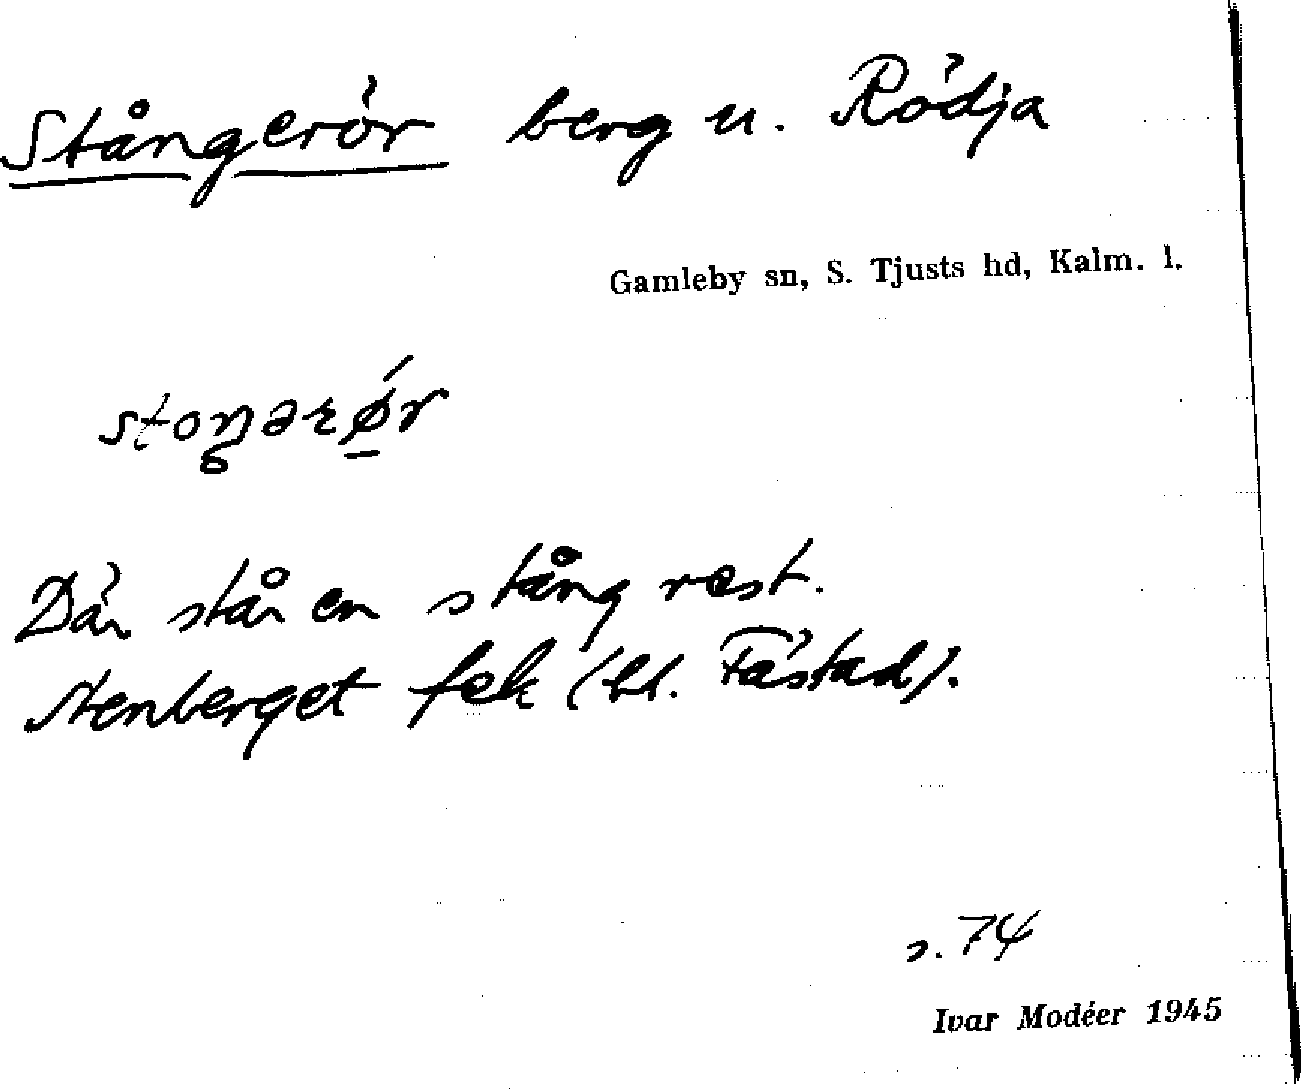 Stångerör berg u. Rödja
Gamleby sn, S. Tjusts hd, Kalm. l.
stoŋərǿ̱r
Där står en stång rest.
Stenberget fek (bl. Fästad).
s. 74
Ivar Modéer 1945